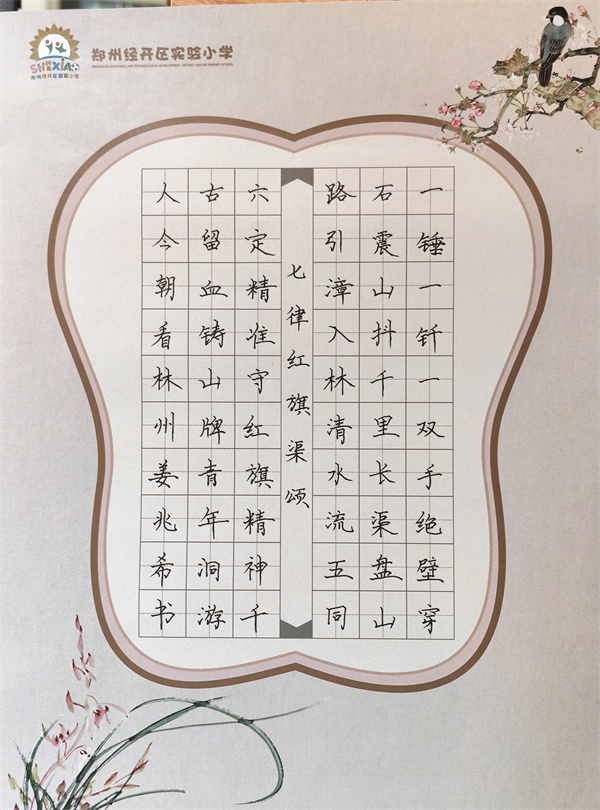 郑州经开区实验小学
郑州经开区实验小学
一锤一钎一双手绝壁穿
石震山抖千里长渠盘山
路引漳入林清水流五同
七律红旗渠颂
六定精准守红旗精神千
古留血铸山牌青年洞游
人今朝看林州姜兆希书